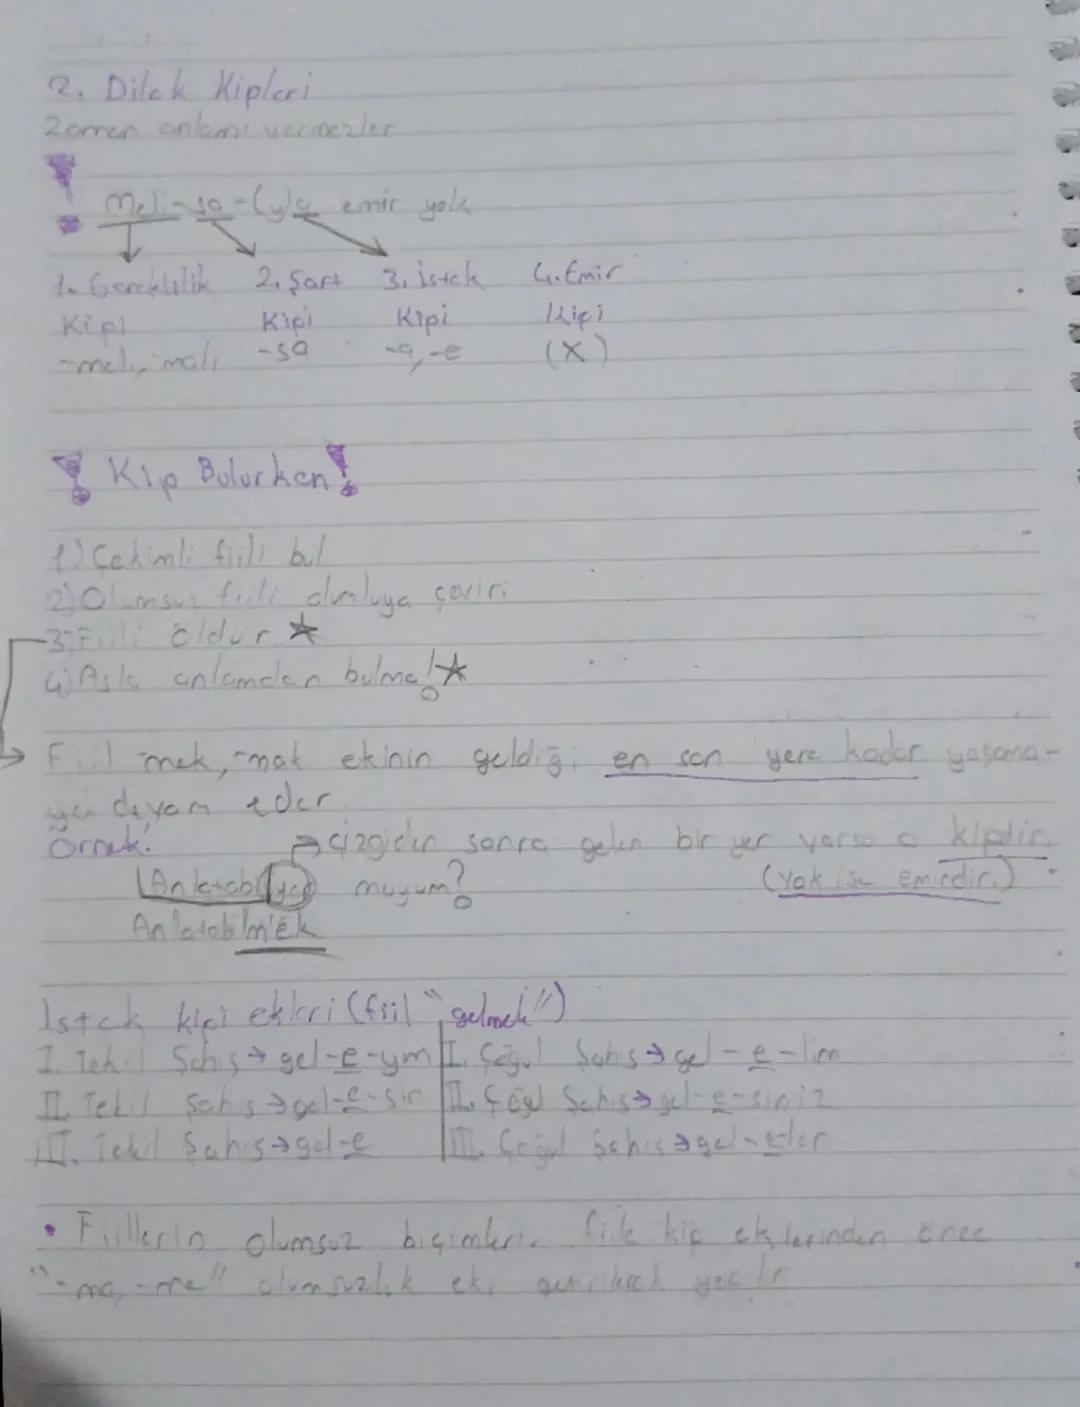 2. Dilek Kipleri
Zaman anlamı vermezler
! Meli-sa-(y)a emir yok
1. Gereklilik 2. Şart 3. istek 4. Emir
Kipi Kipi Kipi Kipi
-meli, -malı -sa -a, -e (X)
! Kip Bulurken!
1) Çekimli fiili bul
2) Olumsuz fiili olumluya çevir.
3) Fiili öldür ★
4) Asla anlamdan bulma! ★
Fiil -mek, -mak ekinin geldiği en son yere kadar yaşama-
ya devam eder.
Örnek: → çizgiden sonra gelen bir yer varsa o kiptir.
Anlatabiliyor muyum? (Yok ise emirdir.)
Anlatabilmek
İstek kipi ekleri (fiil "gelmek")
I. Tekil Şahıs → gel-e-yım I. Çoğul Şahıs → gel-e-lim
II. Tekil Şahıs → gel-e-sin II. Çoğul Şahıs → gel-e-siniz
III. Tekil Şahıs → gel-e III. Çoğul Şahıs → gel-e-ler
• Fiillerin olumsuz biçimleri. fiile kip eklerinden önce
"-ma, -me" olumsuzluk eki getirilerek yapılır